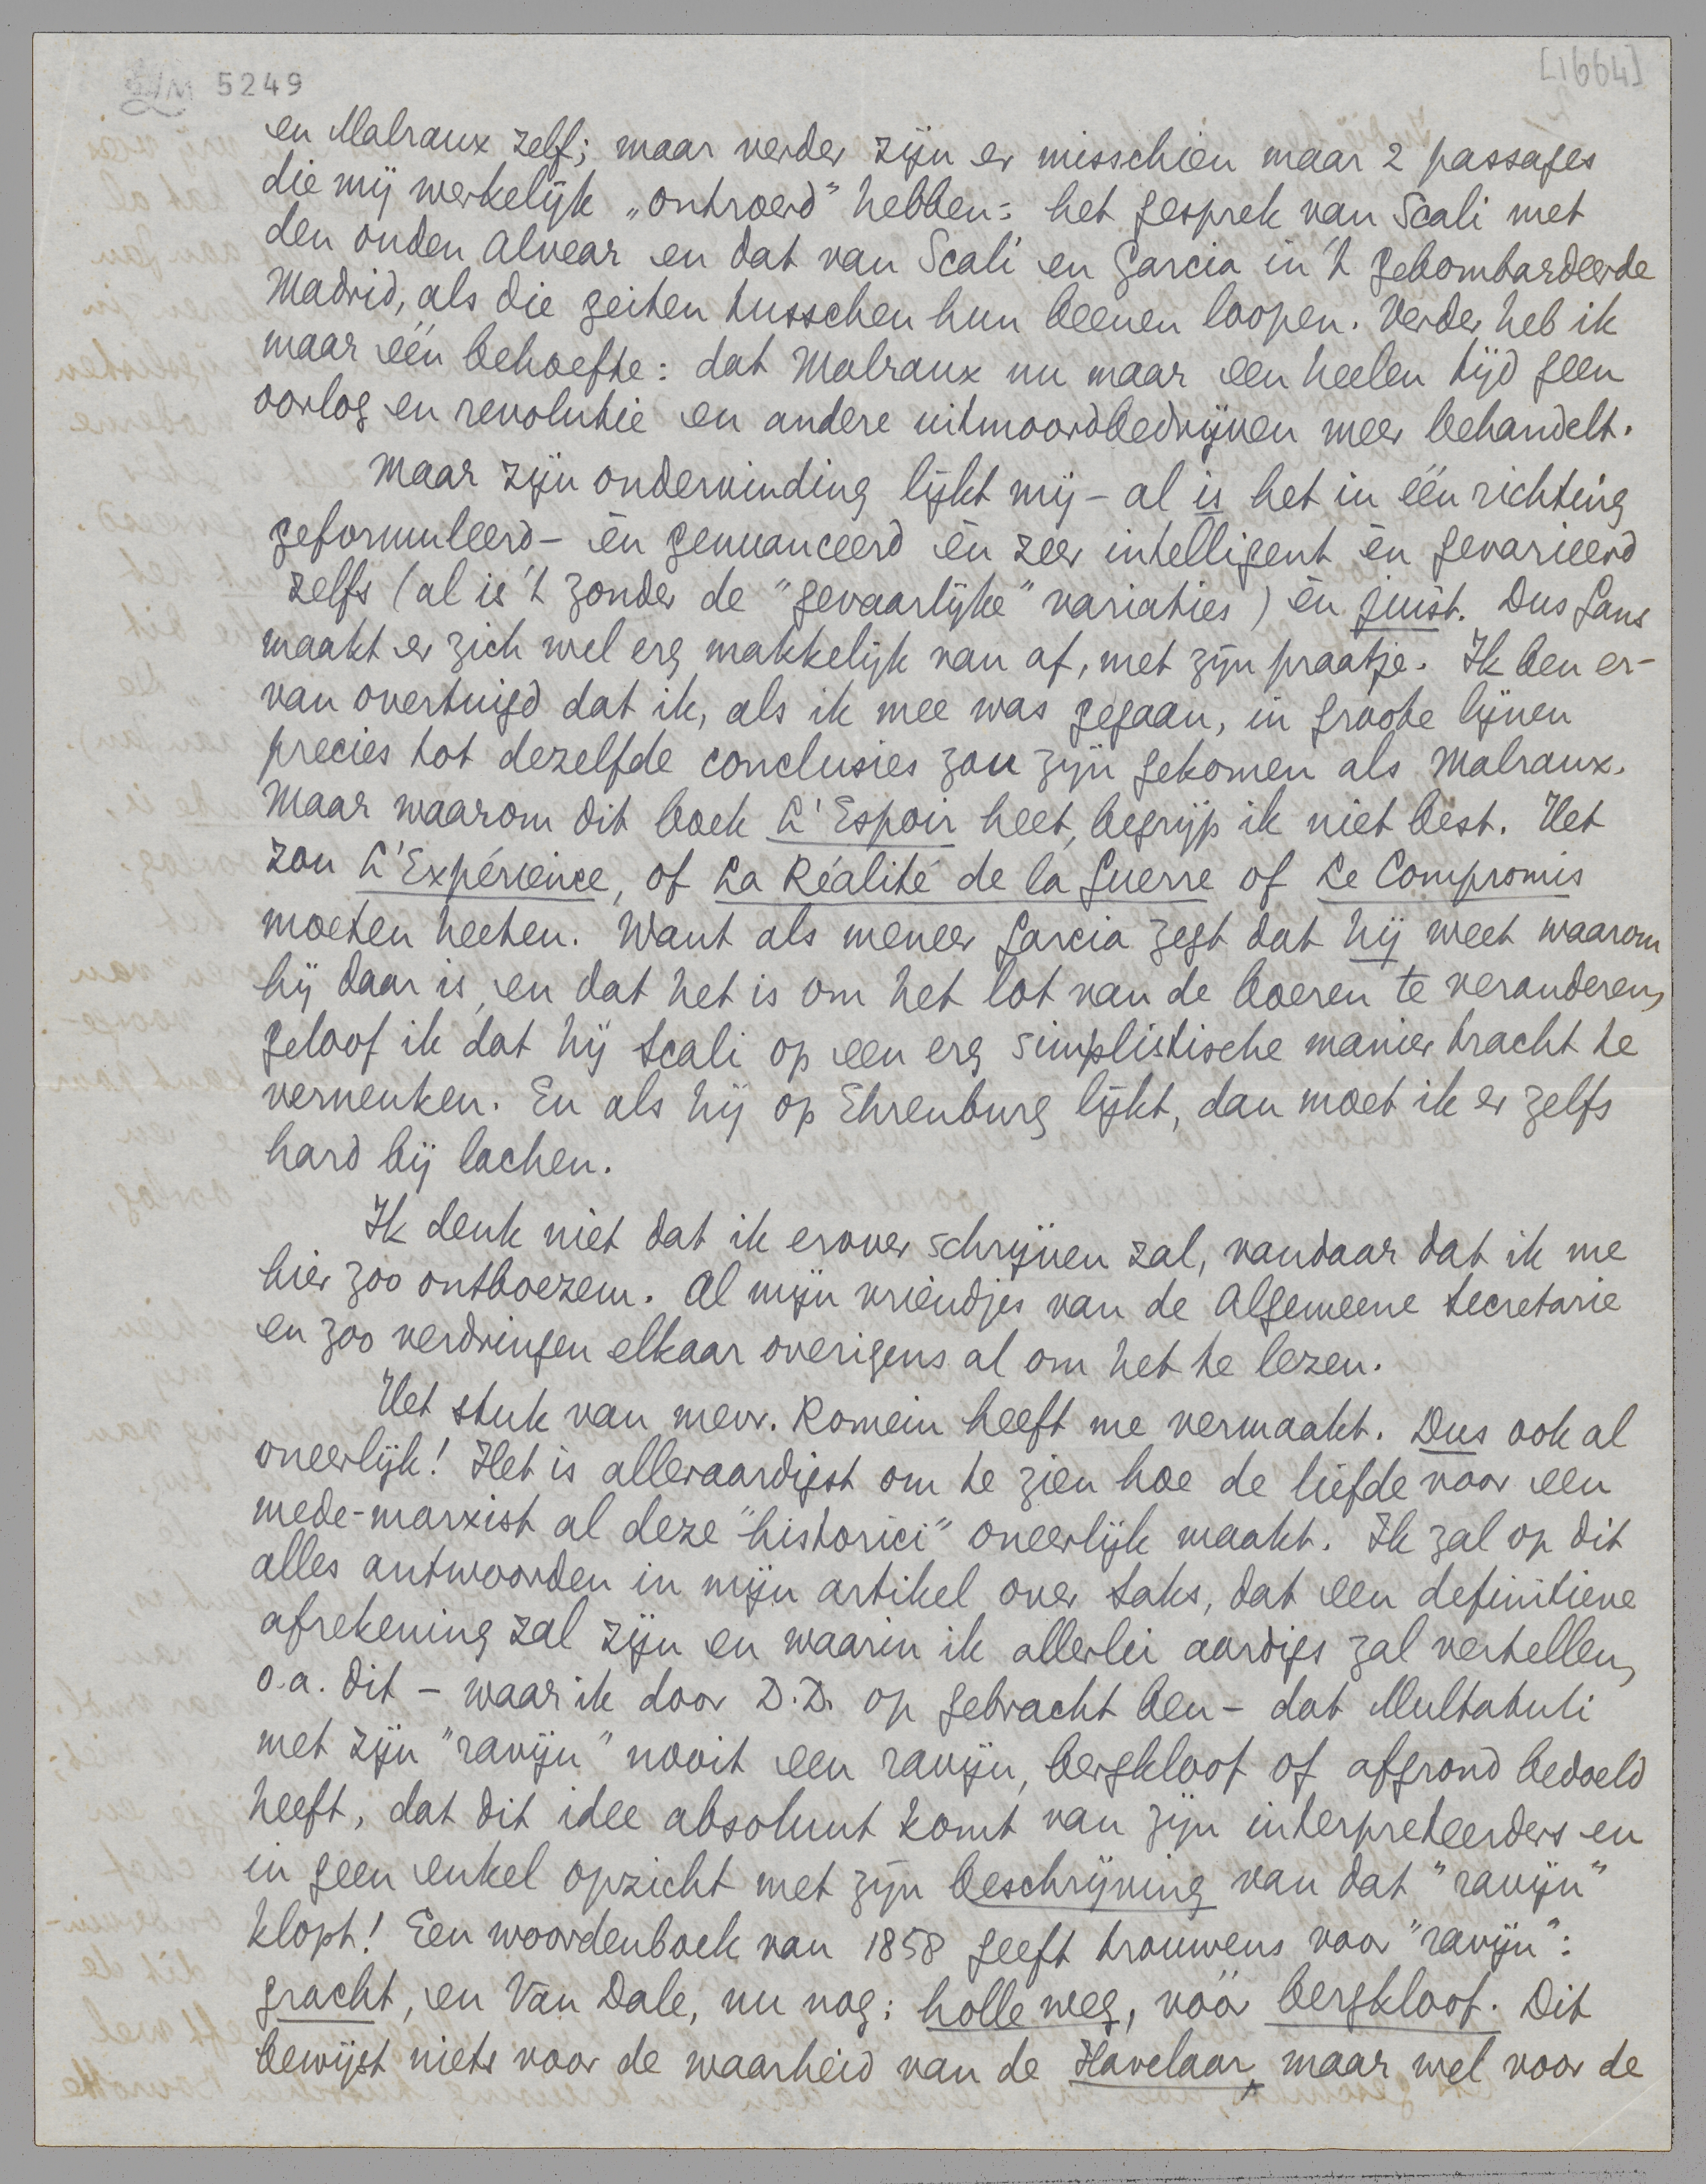 5249
[1664]
en Malraux zelf; maar verder zijn er misschien maar 2 passages
die mij werkelijk „ontroerd” hebben: het gesprek van Scali met
den ouden Alvear en dat van Scali en Garcia in 't gebombardeerde
Madrid, als die geiten tusschen hun beenen loopen. Verder heb ik
maar één behoefte: dat Malraux nu maar een heelen tijd geen
oorlog en revolutie en andere uitmoordbedrijven meer behandelt.
Maar zijn ondervinding lijkt mij – al is het in één richting
geformuleerd – èn genuanceerd èn zeer intelligent èn gevarieerd
zelfs (al is 't zonder de "gevaarlijke" variaties) èn juist. Dus Gans
maakt er zich wel erg makkelijk van af, met zijn praatje. Ik ben er-
van overtuigd dat ik, als ik mee was gegaan, in groote lijnen
precies tot dezelfde conclusies zou zijn gekomen als Malraux.
Maar waarom dit boek L'Espoir heet, begrijp ik niet best. Het
zou L'Expérience, of La Réalité de la Guerre of Le Compromis
moeten heeten. Want als meneer Garcia zegt dat hij weet waarom
hij daar is, en dat het is om het lot van de boeren te veranderen,
geloof ik dat hij Scali op een erg simplistische manier tracht te
verneuken. En als hij op Ehrenburg lijkt, dan moet ik er zelfs
hard bij lachen.
Ik denk niet dat ik erover schrijven zal, vandaar dat ik me
hier zoo ontboezem. Al mijn vriendjes van de Algemeene Secretarie
en zoo verdringen elkaar overigens al om het te lezen.
Het stuk van mevr. Romein heeft me vermaakt. Dus ook al
oneerlijk! Het is alleraardigst om te zien hoe de liefde voor een
mede-marxist al deze "historici" oneerlijk maakt. Ik zal op dit
alles antwoorden in mijn artikel over Saks, dat een definitieve
afrekening zal zijn en waarin ik allerlei aardigs zal vertellen,
o.a. dit – waar ik door D.D. op gebracht ben – dat Multatuli
met zijn "ravijn" nooit een ravijn, bergkloof of afgrond bedoeld
heeft, dat dit idee absoluut komt van zijn interpreteerders en
in geen enkel opzicht met zijn beschrijving van dat "ravijn"
klopt! Een woordenboek van 1858 geeft trouwens voor "ravijn":
gracht, en Van Dale, nu nog: holle weg, vóór bergkloof. Dit
bewijst niets voor de waarheid van de Havelaar, maar wel voor de